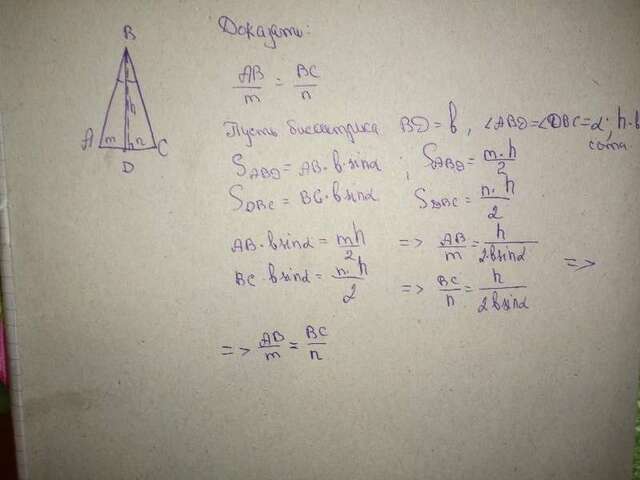 Доказать:
AB/m = BC/n
Пусть биссектриса BD = b, ∠ABD = ∠DBC = α; h - в
сота
S_ABD = AB · b · sinα ; S_ABD = m · h / 2
S_DBC = BC · b sinα S_DBC = n · h / 2
AB · b sinα = mh / 2 => AB/m = h / 2b sinα =>
BC · b sinα = n · h / 2 => BC/n = h / 2b sinα
=> AB/m = BC/n
B
h
A m n C
D